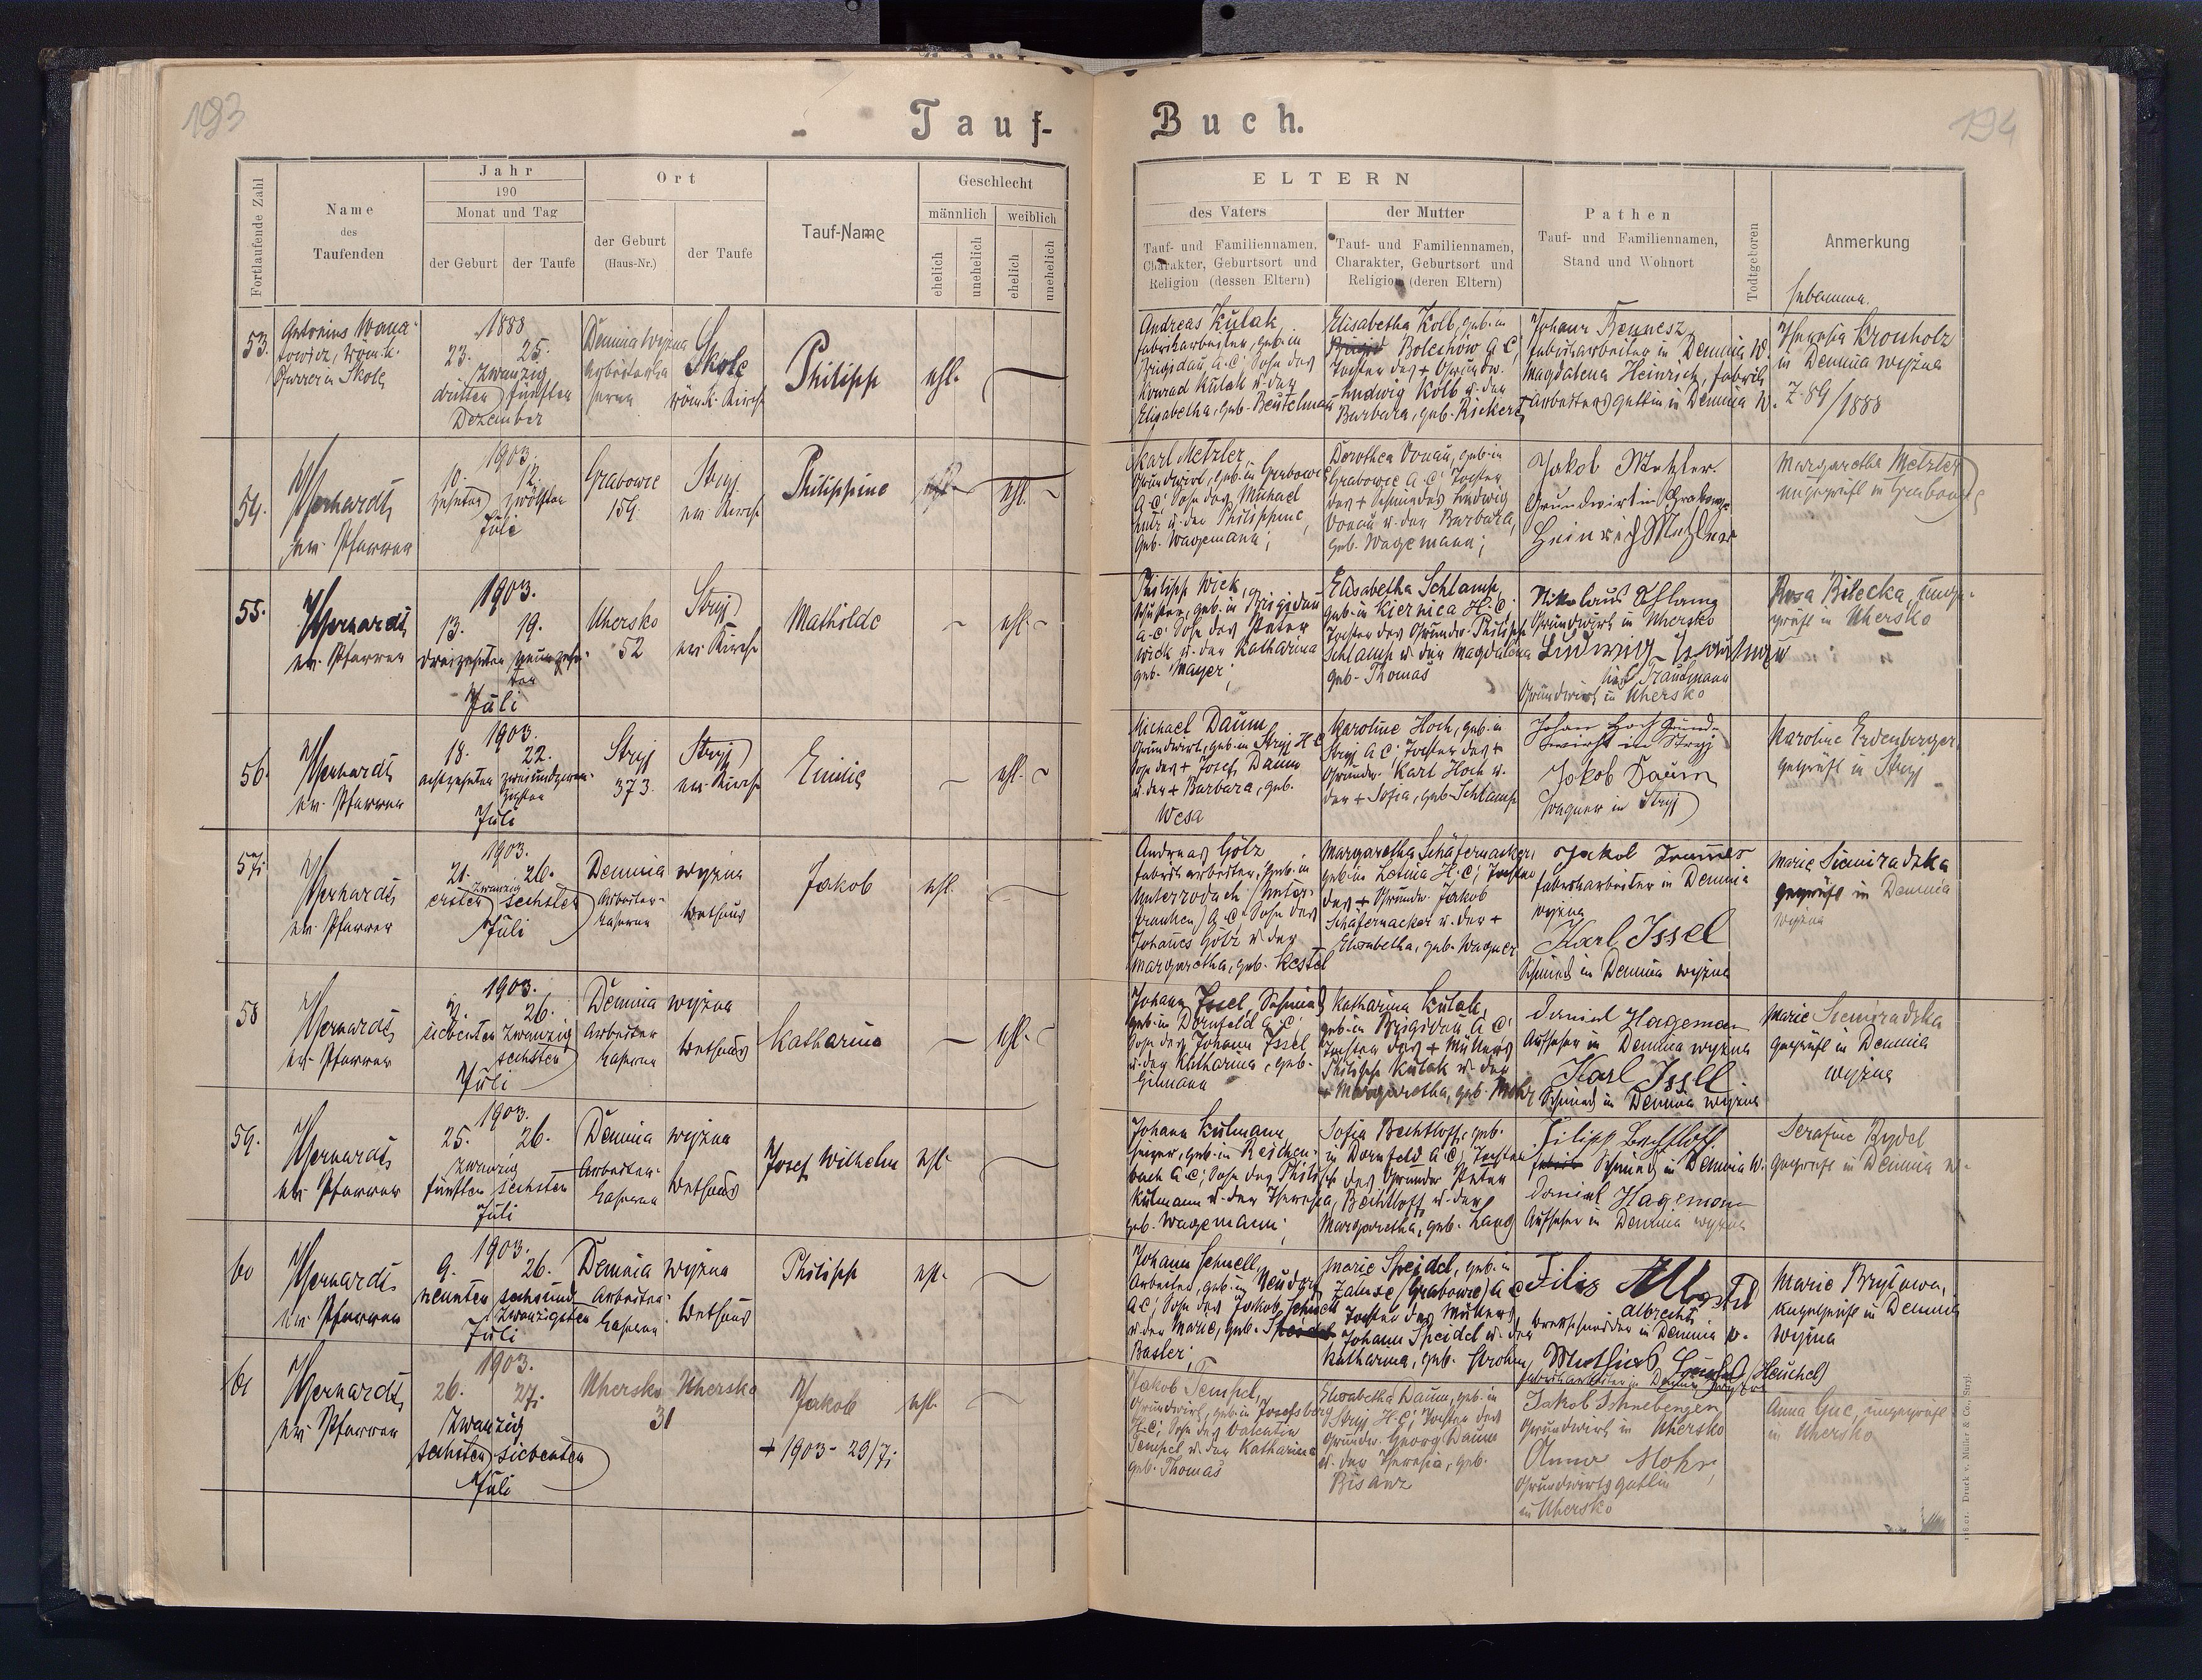 193
Tauf-
Buch.
194
Fortlaufende Zahl
Name
des
Taufenden
Jahr
190
Monat und Tag
der Geburt
der Taufe
Ort
der Geburt
(Haus-Nr.)
der Taufe
Tauf-Name
Geschlecht
männlich
weiblich
ehelich
unehelich
ehelich
unehelich
ELTERN
des Vaters
Tauf- und Familiennamen,
Charakter, Geburtsort und
Religion (dessen Eltern)
der Mutter
Tauf- und Familiennamen,
Charakter, Geburtsort und
Religion (deren Eltern)
Pathen
Tauf- und Familiennamen,
Stand und Wohnort
Todtgeboren
Anmerkung
Hebamme.
53.
Antonius
röm. k.
Pfarrer in Skole
1888
23. 25.
zwanzig
dritten fünften
Dezember
Demnia wyżna
Skole
röm. k. Kirche
Philipp
ehl.
Andreas Kulak,
Fabriksarbeiter, geb. in
Brigidau A.C.; Sohn des
Konrad Kulak u. der
Elisabetha, geb. Beutelmann
Elisabetha Kolb, geb. in
Bolechów A.C.;
Tochter des + Grundw.
Ludwig Kolb u. der
Barbara, geb. Rickert
Johann
Fabriksarbeiter in Demnia W.
Magdalena Heinrich, Fabriks-
arbeitersgattin in Demnia W.
Theresia Kronholz
in Demnia wyżna
Z. 89/1888
54.
ev. Pfarrer
1903.
10. 12.
zehnten zwölften
Juli
Grabowce
159.
Stryj
ev. Kirche
Philippine
ehl.
Karl Metzler,
Grundwirt, geb. in Grabowce
A.C.; Sohn des Michael
u. der Philippine,
geb. Wagemann;
Dorothea Donau, geb. in
Grabowce A.C.; Tochter
des + Schmiedes Ludwig
Donau u. der Barbara,
geb. Wagemann;
Jakob Metzler
Grundwirt in Grabowce
Heinrich Metzler
Margaretha Metzler
ungeprüft in Grabowce
55.
ev. Pfarrer
1903.
13. 19.
dreizehnten neunzehn-
ten
Juli
Uhersko
52
Stryj
ev. Kirche
Mathilde
ehl.
Philipp Wick,
Schuster, geb. in Brigidau
A.C.; Sohn des Peter
Wick u. der Katharina
geb. Mayer;
Elisabetha Schlamp,
geb. in Kiernica H.C.;
Tochter des Grundw. Philipp
Schlamp u. der Magdalena
geb. Thomas
Nikolaus Schlamp
Grundwirt in Uhersko
Ludwig
Trautmann
Grundwirt in Uhersko
Rosa Bilecka, unge-
prüft in Uhersko
56.
ev. Pfarrer
1903.
18. 22.
achtzehnten zweiundzwan-
zigsten
Juli
Stryj
373.
Stryj
ev. Kirche
Emilie
ehl.
Michael Daum
Grundwirt, geb. in Stryj H.C.
Sohn des + Josef Daum
u. der + Barbara, geb.
Wesa
Karoline Hoch, geb. in
Stryj A.C.; Tochter des +
Grundw. Karl Hoch u.
der + Sofia, geb. Schlamp
Johann Hoch Grund-
wirth in Stryj
Jakob Daum
Wagner in Stryj
Karoline Erdenberger
geprüft in Stryj
57.
ev. Pfarrer
1903.
21. 26.
zwanzig
ersten sechsten
Juli
Demnia wyżna
Arbeiter-
kaserne
Bethaus
Jakob
ehl.
Andreas Götz
Fabriksarbeiter, geb. in
Unterrodach (Unter-
franken) A.C. Sohn des
Johannes Götz u. der
Margaretha, geb. Kestel
Margaretha Schäfernacker,
geb. in Letnia H.C.; Tochter
des + Grundw. Jakob
Schäfernacker u. der +
Elisabetha, geb. Wagner
Jakob
Fabriksarbeiter in Demnia
wyżna
Karl Issel
Schmied in Demnia wyżna
Marie Siemiradzka
geprüft in Demnia
wyżna
58
ev. Pfarrer
1903.
7. 26.
siebenten zwanzig
sechsten
Juli
Demnia wyżna
Arbeiter
kaserne
Bethaus
Katharina
ehl.
Johann Issel, Schmied
geb. in Dornfeld A.C.;
Sohn des Johann Issel
u. der Katharina, geb.
Gilmann
Katharina Kulak,
geb. in Brigidau A.C.
Tochter des + Müllers
Philipp Kulak u. der
+ Margaretha, geb. Mohr
Daniel Hageman
Aufseher in Demnia wyżna
Karl Issel
Schmied in Demnia wyżna
Marie Siemiradzka
geprüft in Demnia
wyżna
59.
ev. Pfarrer
1903.
25. 26.
zwanzig
fünften sechsten
Juli
Demnia wyżna
Arbeiter-
kaserne
Bethaus
Josef Wilhelm
ehl.
Johann Kulmann
geb. in Reichen-
bach A.C.; Sohn des Philipp
Kulmann u. der Theresia,
geb. Wagemann;
Sofia Bechtloff, geb.
in Dornfeld A.C.; Tochter
des Grundw. Peter
Bechtloff u. der
Margaretha, geb. Lang
Filipp Bechtloff
Schmied in Demnia W.
Daniel Hageman
Aufseher in Demnia wyżna
Serafine Rydel
geprüft in Demnia w.
60
ev. Pfarrer
1903.
9. 26.
neunten sechsund
zwanzigsten
Juli
Demnia wyżna
Arbeiter-
kaserne
Bethaus
Philipp
ehl.
Johann Schnell,
Arbeiter, geb. in Neudorf
A.C.; Sohn des Jakob Schnell
u. der Marie, geb.
Basler;
Marie Speidel, geb. in
(Grabowce) A.C.
Tochter des Müllers
Johann Speidel u. der
Katharina, geb. Strohm
Filip
Albrecht
Brettschneider in Demnia w.
Mathias (Heuchel)
Fabriksarbeiter in Demnia wyżna
Marie Brylowa,
ungeprüft in Demnia
wyżna
61
ev. Pfarrer
1903.
26. 27.
zwanzig
sechsten siebenten
Juli
Uhersko Uhersko
31
Jakob
+ 1903 - 29/7.
ehl.
Jakob Tempel,
Grundwirt, geb. in Josefsberg
H.C.; Sohn des Valentin
Tempel u. der Katharina
geb. Thomas
Elisabetha Daum, geb. in
Stryj H.C.; Tochter des
Grundw. Georg Daum
u. der Theresia, geb.
Bisanz
Jakob Schneberger
Grundwirt in Uhersko
Anna Mohr,
Grundwirtsgattin
in Uhersko
Anna Guc, ungeprüft
in Uhersko
Druck v. Müller & Co., Stryj.